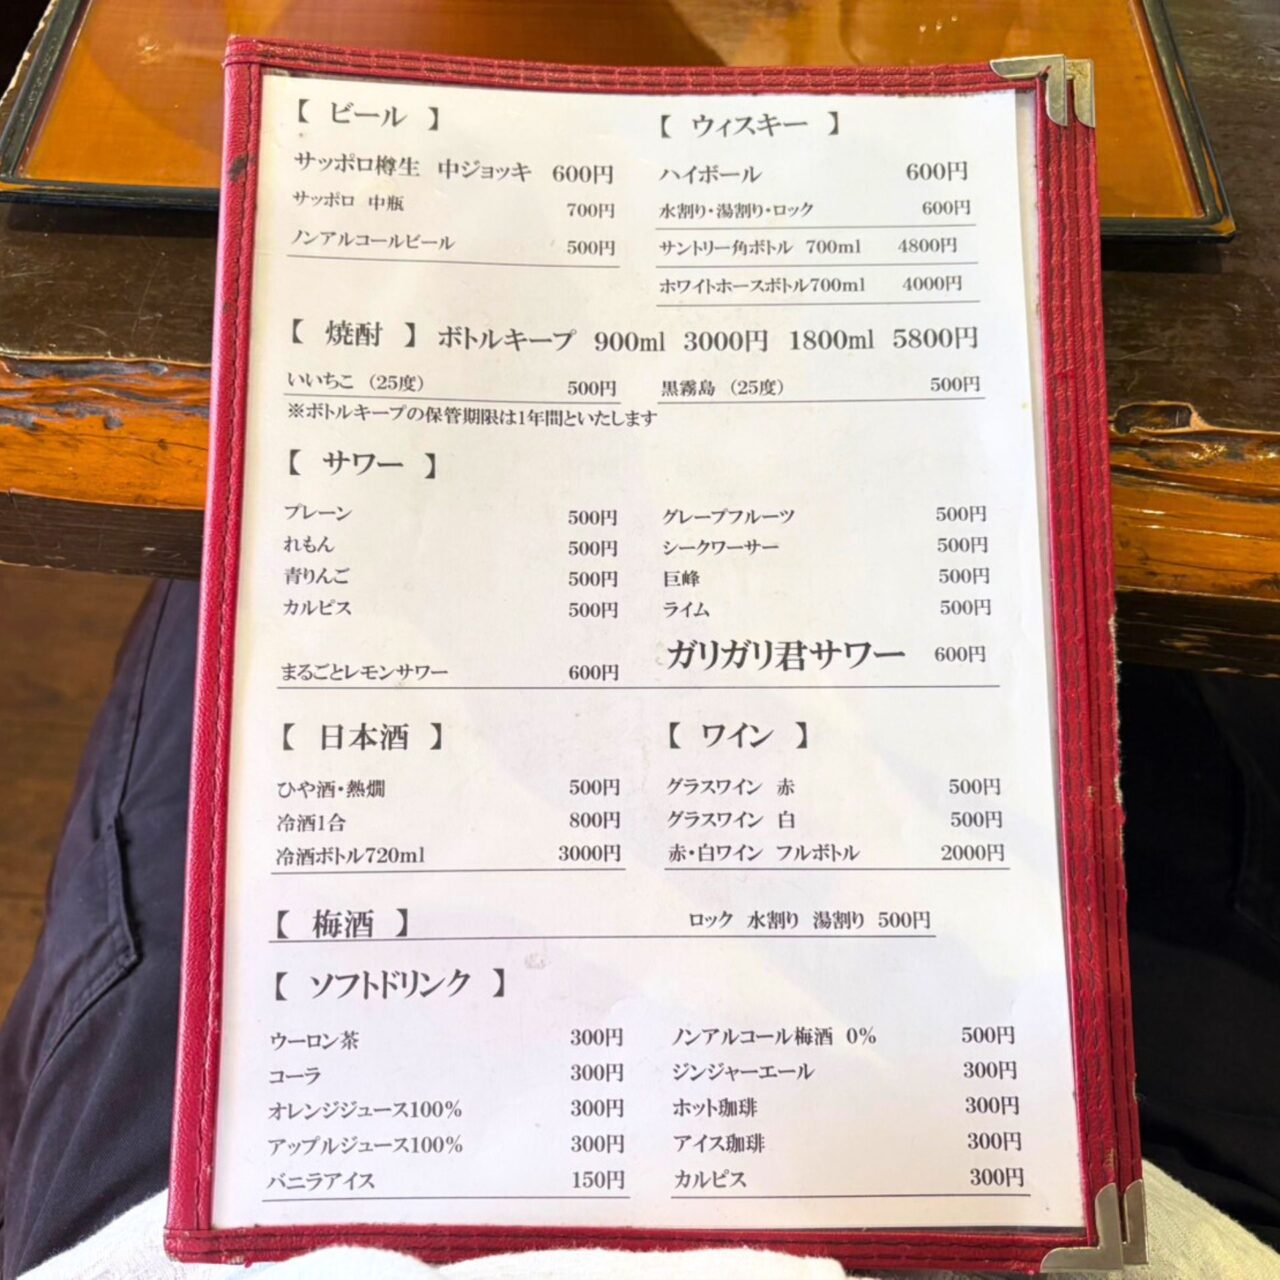 【 ビール 】
サッポロ樽生 中ジョッキ 600円
サッポロ 中瓶 700円
ノンアルコールビール 500円
【 ウィスキー 】
ハイボール 600円
水割り・湯割り・ロック 600円
サントリー角ボトル 700ml 4800円
ホワイトホースボトル700ml 4000円
【 焼酎 】 ボトルキープ 900ml 3000円 1800ml 5800円
いいちこ （25度） 500円
黒霧島 （25度） 500円
※ボトルキープの保管期限は1年間といたします
【 サワー 】
プレーン 500円
れもん 500円
青りんご 500円
カルピス 500円
まるごとレモンサワー 600円
グレープフルーツ 500円
シークワーサー 500円
巨峰 500円
ライム 500円
ガリガリ君サワー 600円
【 日本酒 】
ひや酒・熱燗 500円
冷酒1合 800円
冷酒ボトル720ml 3000円
【 ワイン 】
グラスワイン 赤 500円
グラスワイン 白 500円
赤・白ワイン フルボトル 2000円
【 梅酒 】 ロック 水割り 湯割り 500円
【 ソフトドリンク 】
ウーロン茶 300円
コーラ 300円
オレンジジュース100% 300円
アップルジュース100% 300円
バニラアイス 150円
ノンアルコール梅酒 0% 500円
ジンジャーエール 300円
ホット珈琲 300円
アイス珈琲 300円
カルピス 300円